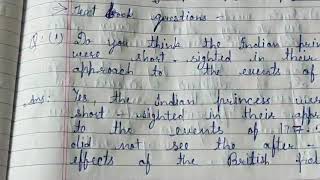 → Text Book questions -
Q.(1) Do you think the Indian prin
were short-sighted in their
approach to the events of
Ans: Yes, the Indian princess wer
short-sighted in their app
to the events of 1757.
did not see the after-
effects of the British pol